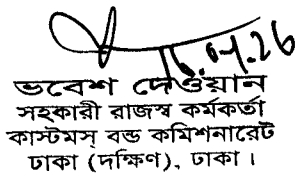 ১৬.০৭.২৬
ভবেশ দেওয়ান
সহকারী রাজস্ব কর্মকর্তা
কাস্টমস্ বন্ড কমিশনারেট
ঢাকা (দক্ষিণ), ঢাকা ।